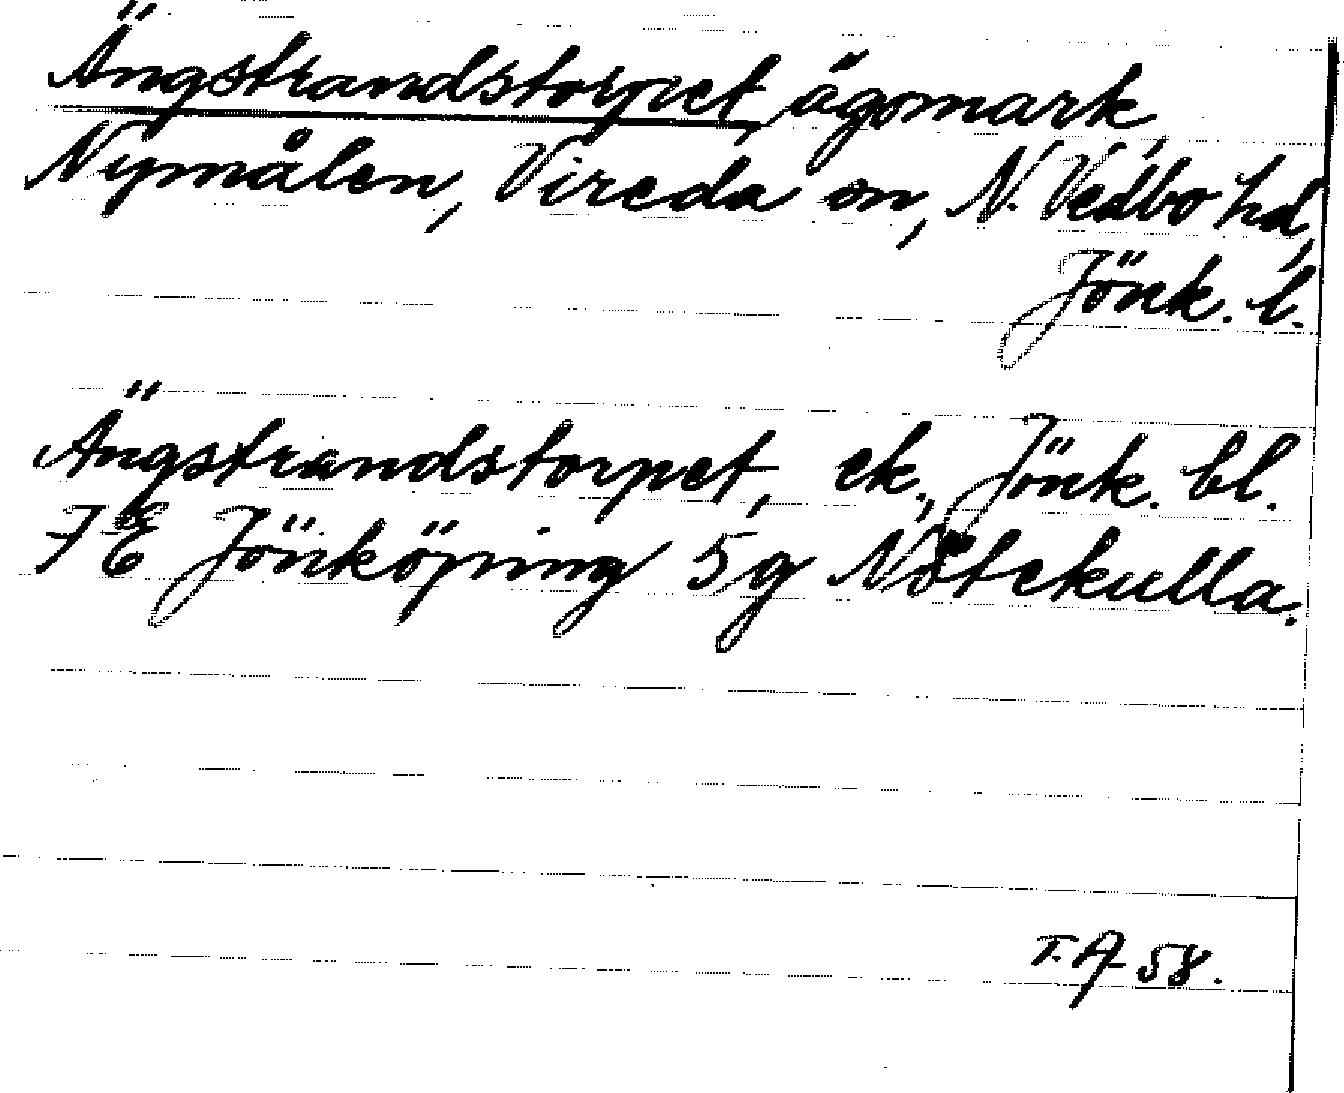 Ängstrandstorpet, ägomark,
Nymålen, Vireda sn, N. Vedbo hd,
Jönk. l.
Ängstrandstorpet, ek., Jönk. bl.
7 E Jönköping 5 g Nötekulla.
T. A 58.